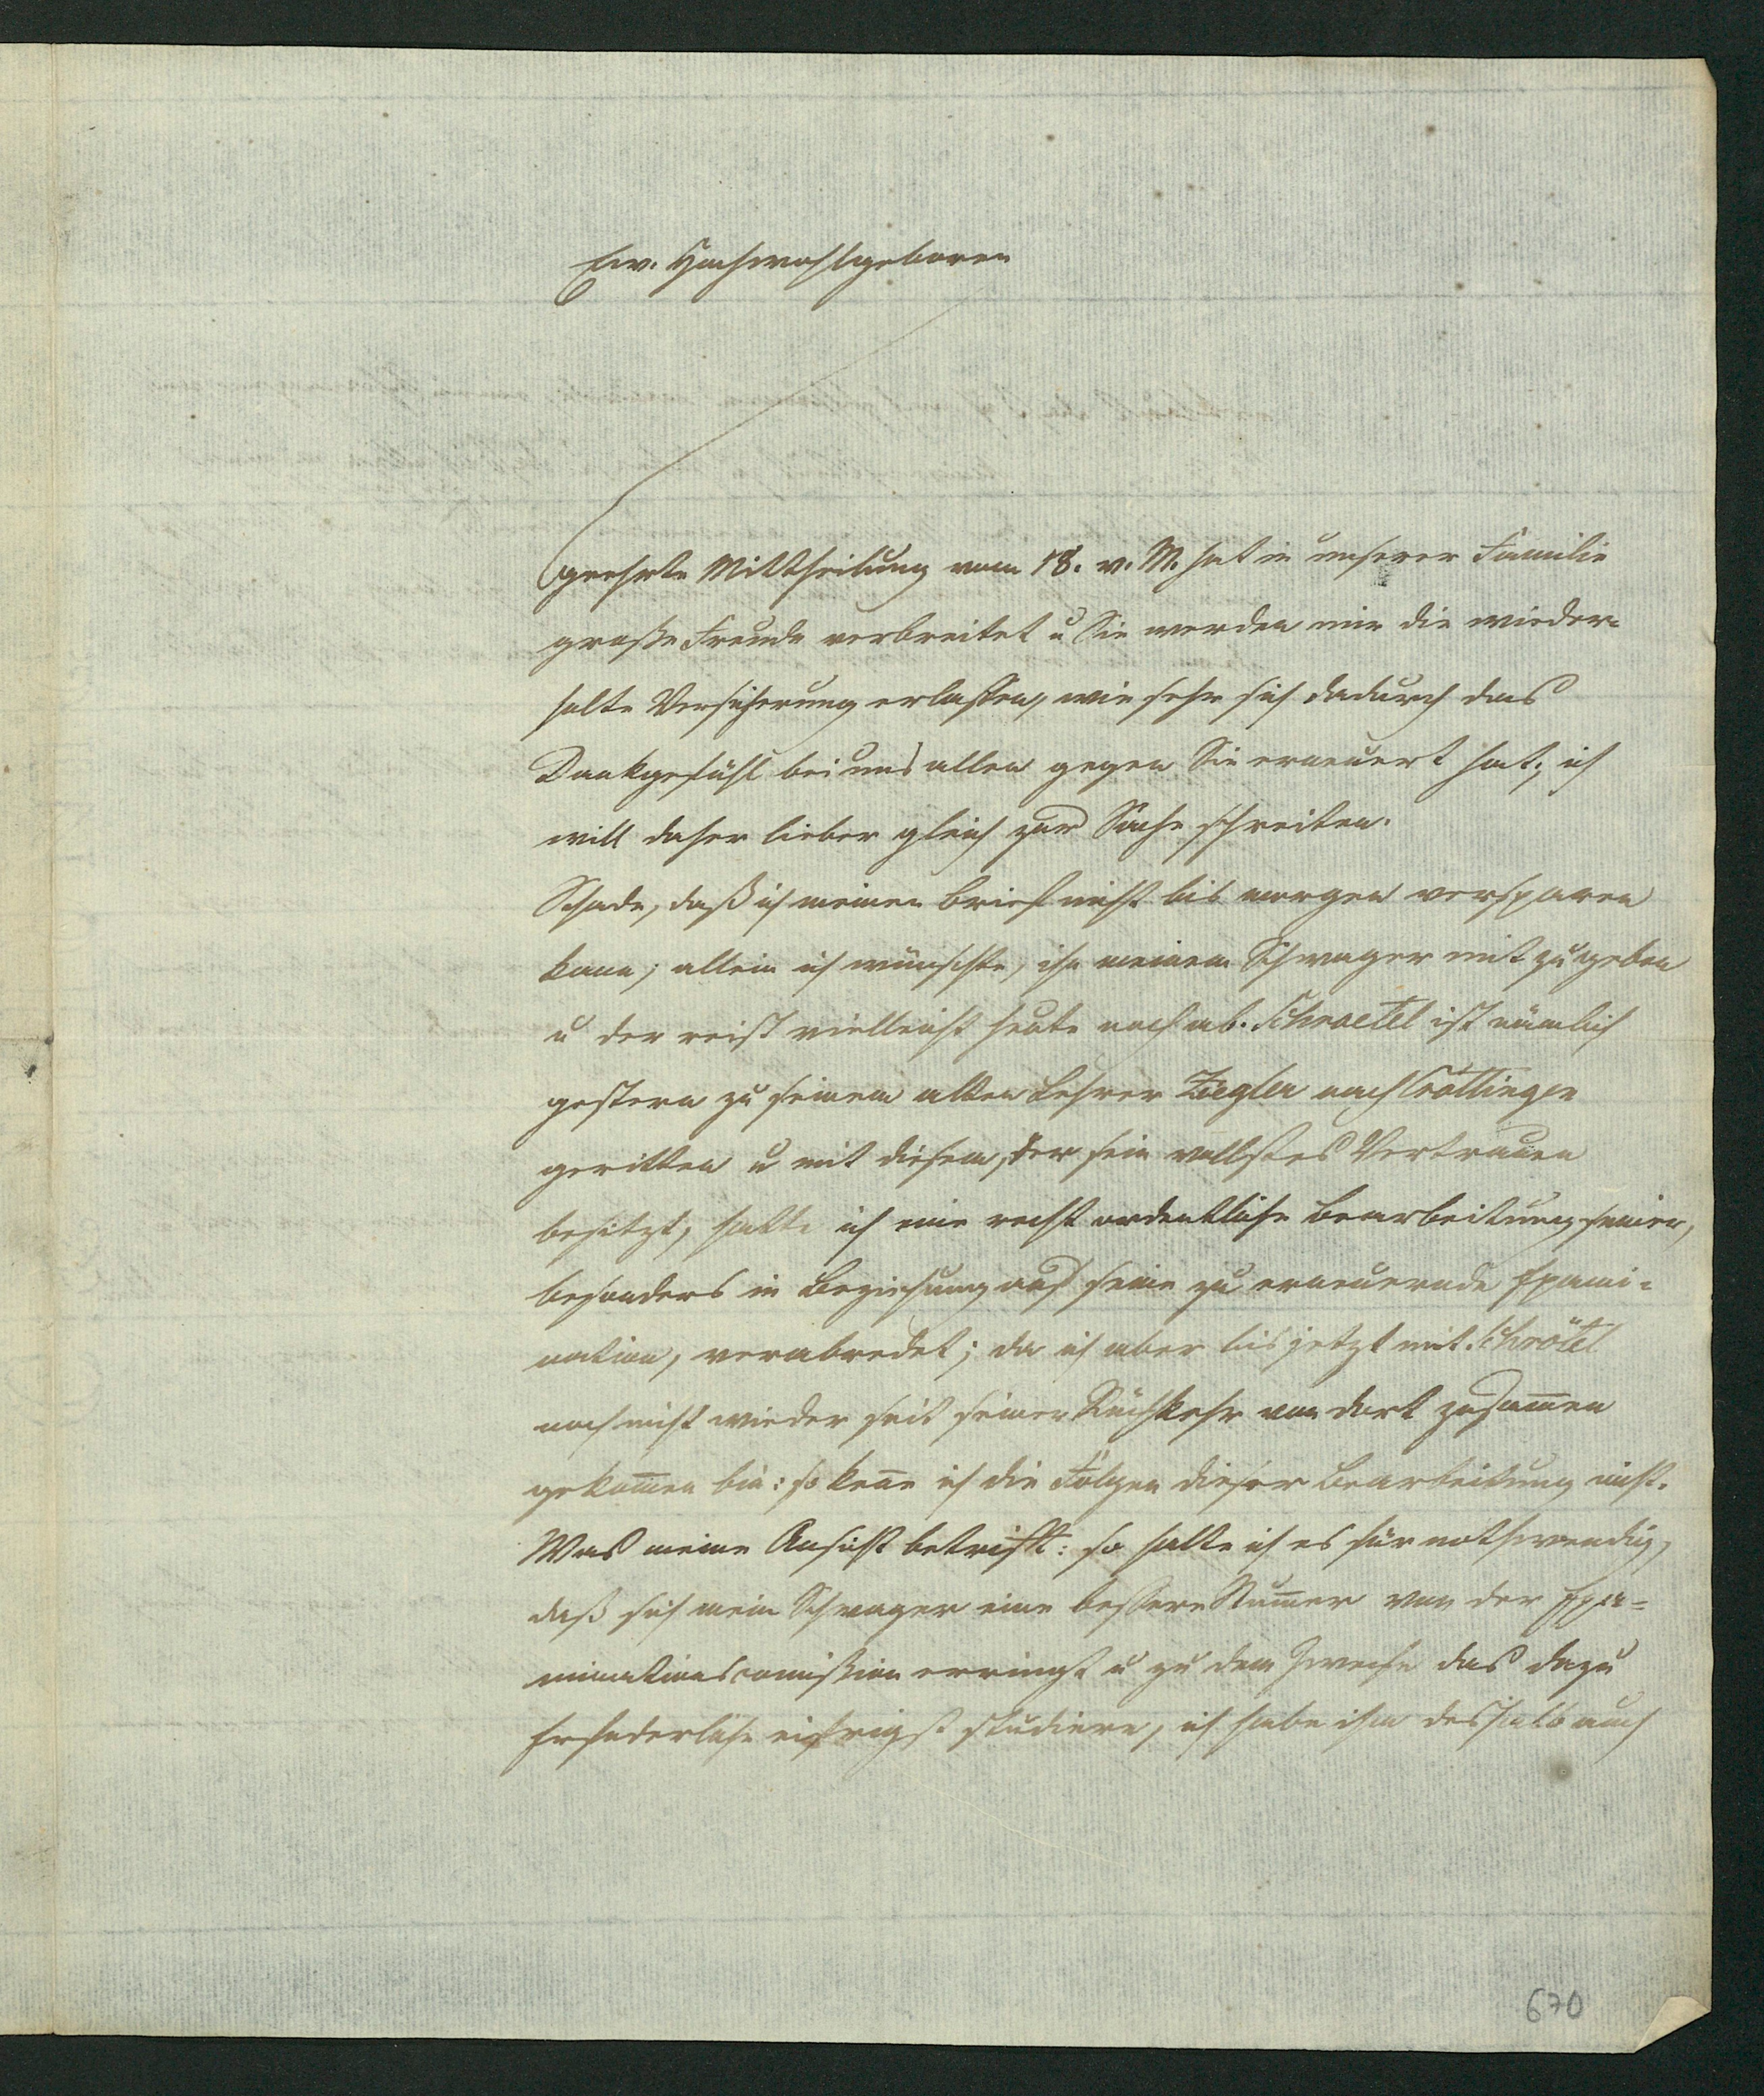 Ew. Hochwohlgeboren
geehrte Mittheilung vom 18. v. M. hat in unserer Familie
große Freude verbreitet u Sie werden mir die wieder-
holte Versicherung erlassen, wie sehr sich dadurch das
Dankgefühl bei uns allen gegen Sie erneuert hat; ich
will daher lieber gleich zur Sache schreiten.
Schade, daß ich meinen Brief nicht bis morgen versparen
kann; allein ich wünschte, ihn meinem Schwager mit zu geben
u der reist vielleicht heute noch ab. Schroetel ist nämlich
gestern zu seinem alten Lehrer Ziegler nach Cröllingen
geritten u mit diesem, der sein vollstes Vertrauen
besitzt, hatte ich eine recht ordentliche Bearbeitung seiner,
besonders in Beziehung auf seine zu erneuernde Exami-
nation, verabredet; da ich aber bis jetzt mit Schrötel
noch nicht wieder seit seiner Rückkehr von dort zusam̅en
gekom̅en bin: so ken̅e ich die Folgen dieser Bearbeitung nicht.
Was meine Ansicht betrifft: so halte ich es für nothwendig,
daß sich mein Schwager eine bessere Num̅er von der Exa-
minationscom̅ißion erringt u zu dem Zwecke das dazu
Erforderliche eifrigst studiere, ich habe ihm deshalb auch
670